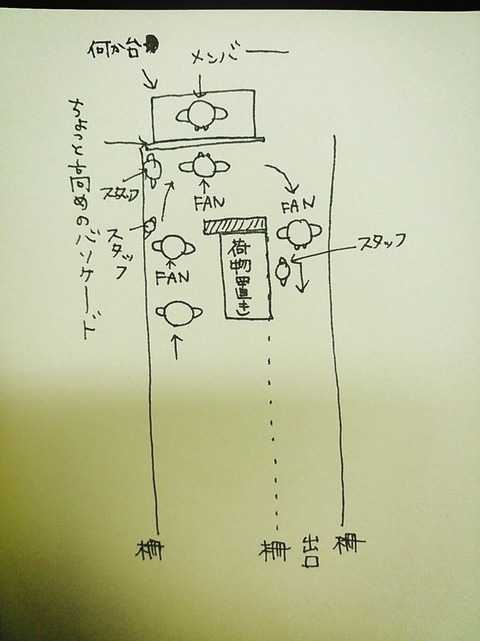 何か台
メンバー
ちょっと高めのバリケード
スタッフ
FAN
FAN
スタッフ
スタッフ
FAN
荷物置き
柵
柵
出口
柵